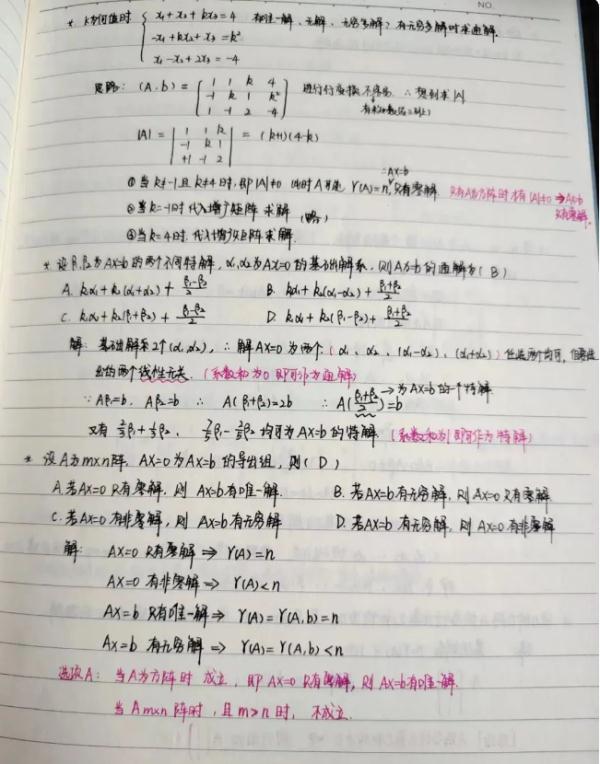 NO.
* k为何值时 { x₁+x₂+kx₃=4 有唯一解、无解、无穷多解？有无穷多解时求通解.
-x₁+kx₂+x₃=k²
x₁-x₂+2x₃=-4
思路: (A.b) = ( 1 1 k 4 进行行变换不容易 ∴想到求|A|
-1 k 1 k²
1 -1 2 -4 )
|A| = | 1 1 k = (k+1)(4-k)
-1 k 1
+1 -1 2 |
① 当k≠-1且k≠4时, 即|A|≠0 此时A可逆 r(A)=n, 只有零解 只有A为方阵时才有|A|≠0 ⇒ Ax=b
∴Ax=b
只有零解.
② 当k=-1时 代入增广矩阵 求解 (略)
③ 当k=4时. 代入增广矩阵求解.
* 设β₁.β₂为Ax=b的两个不同特解, α₁,α₂为Ax=0的基础解系, 则Ax=b的通解为( B )
A. k₁α₁+k₂(α₁+α₂)+(β₁-β₂)/2 B. k₁α₁+k₂(α₁-α₂)+(β₁+β₂)/2
C. k₁α₁+k₂(β₁+β₂)+(β₁-β₂)/2 D. k₁α₁+k₂(β₁-β₂)+(β₁+β₂)/2
解: 基础解系2个(α₁,α₂), ∴ 解AX=0为两个 (α₁、α₂、(α₁-α₂)、(α₁+α₂)) 任选两个均可, 但要
的两个线性无关. (系数和为0即可作为通解)
∵ Aβ₁=b. Aβ₂=b ∴ A(β₁+β₂)=2b ∴ A((β₁+β₂)/2)=b → 为AX=b的一个特解
又有 2/3β₁+1/3β₂ 、 7/5β₁-2/5β₂ 均可为AX=b的特解 (系数和为1即可作为特解)
* 设A为m×n阵, AX=0为AX=b的导出组, 则( D )
A.若AX=0只有零解, 则 AX=b有唯一解 B. 若AX=b有无穷解, 则AX=0只有零解
C.若AX=0有非零解, 则 AX=b有无穷解 D.若AX=b 有无穷解, 则 AX=0有非零解
解: AX=0 只有零解 ⇒ r(A)=n
AX=0 有非零解 ⇒ r(A)<n
AX=b 只有唯一解 ⇒ r(A)=r(A,b)=n
AX=b 有无穷解 ⇒ r(A)=r(A,b)<n
选项A: 当A为方阵时 成立. 即AX=0只有零解, 则 AX=b有唯一解.
当 Am×n 阵时, 且 m>n 时, 不成立.